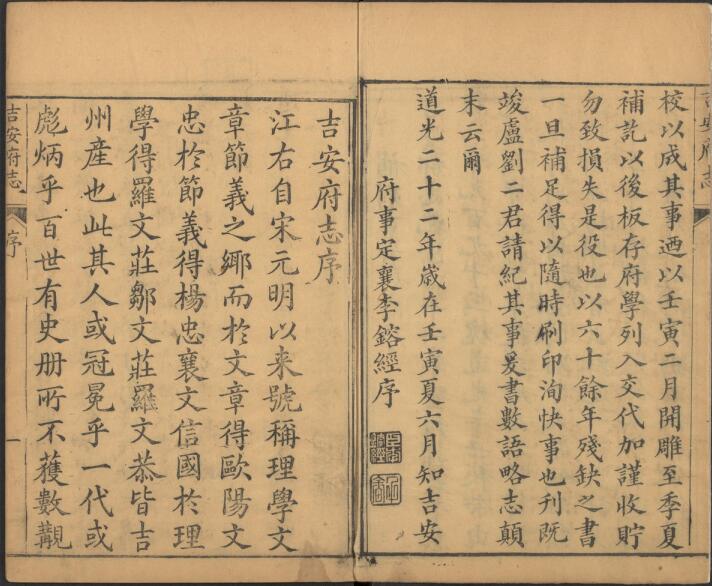 吉安府志
校以成其事迺以壬寅二月開雕至季夏
補訖以後板存府學列入交代加謹收貯
勿致損失是役也以六十餘年殘缺之書
一旦補足得以隨時刷印洵快事也刊既
竣盧劉二君請紀其事爰書數語略志顛
末云爾
道光二十二年歲在壬寅夏六月知吉安
府事定襄李鎔經序
吉安府志序
江右自宋元明以来號稱理學文
章節義之鄉而於文章得歐陽文
忠於節義得楊忠襄文信國於理
學得羅文莊鄒文莊羅文恭皆吉
州産也此其人或冠冕乎一代或
彪炳乎百世有史册所不獲數覯
吉安府志
序
一